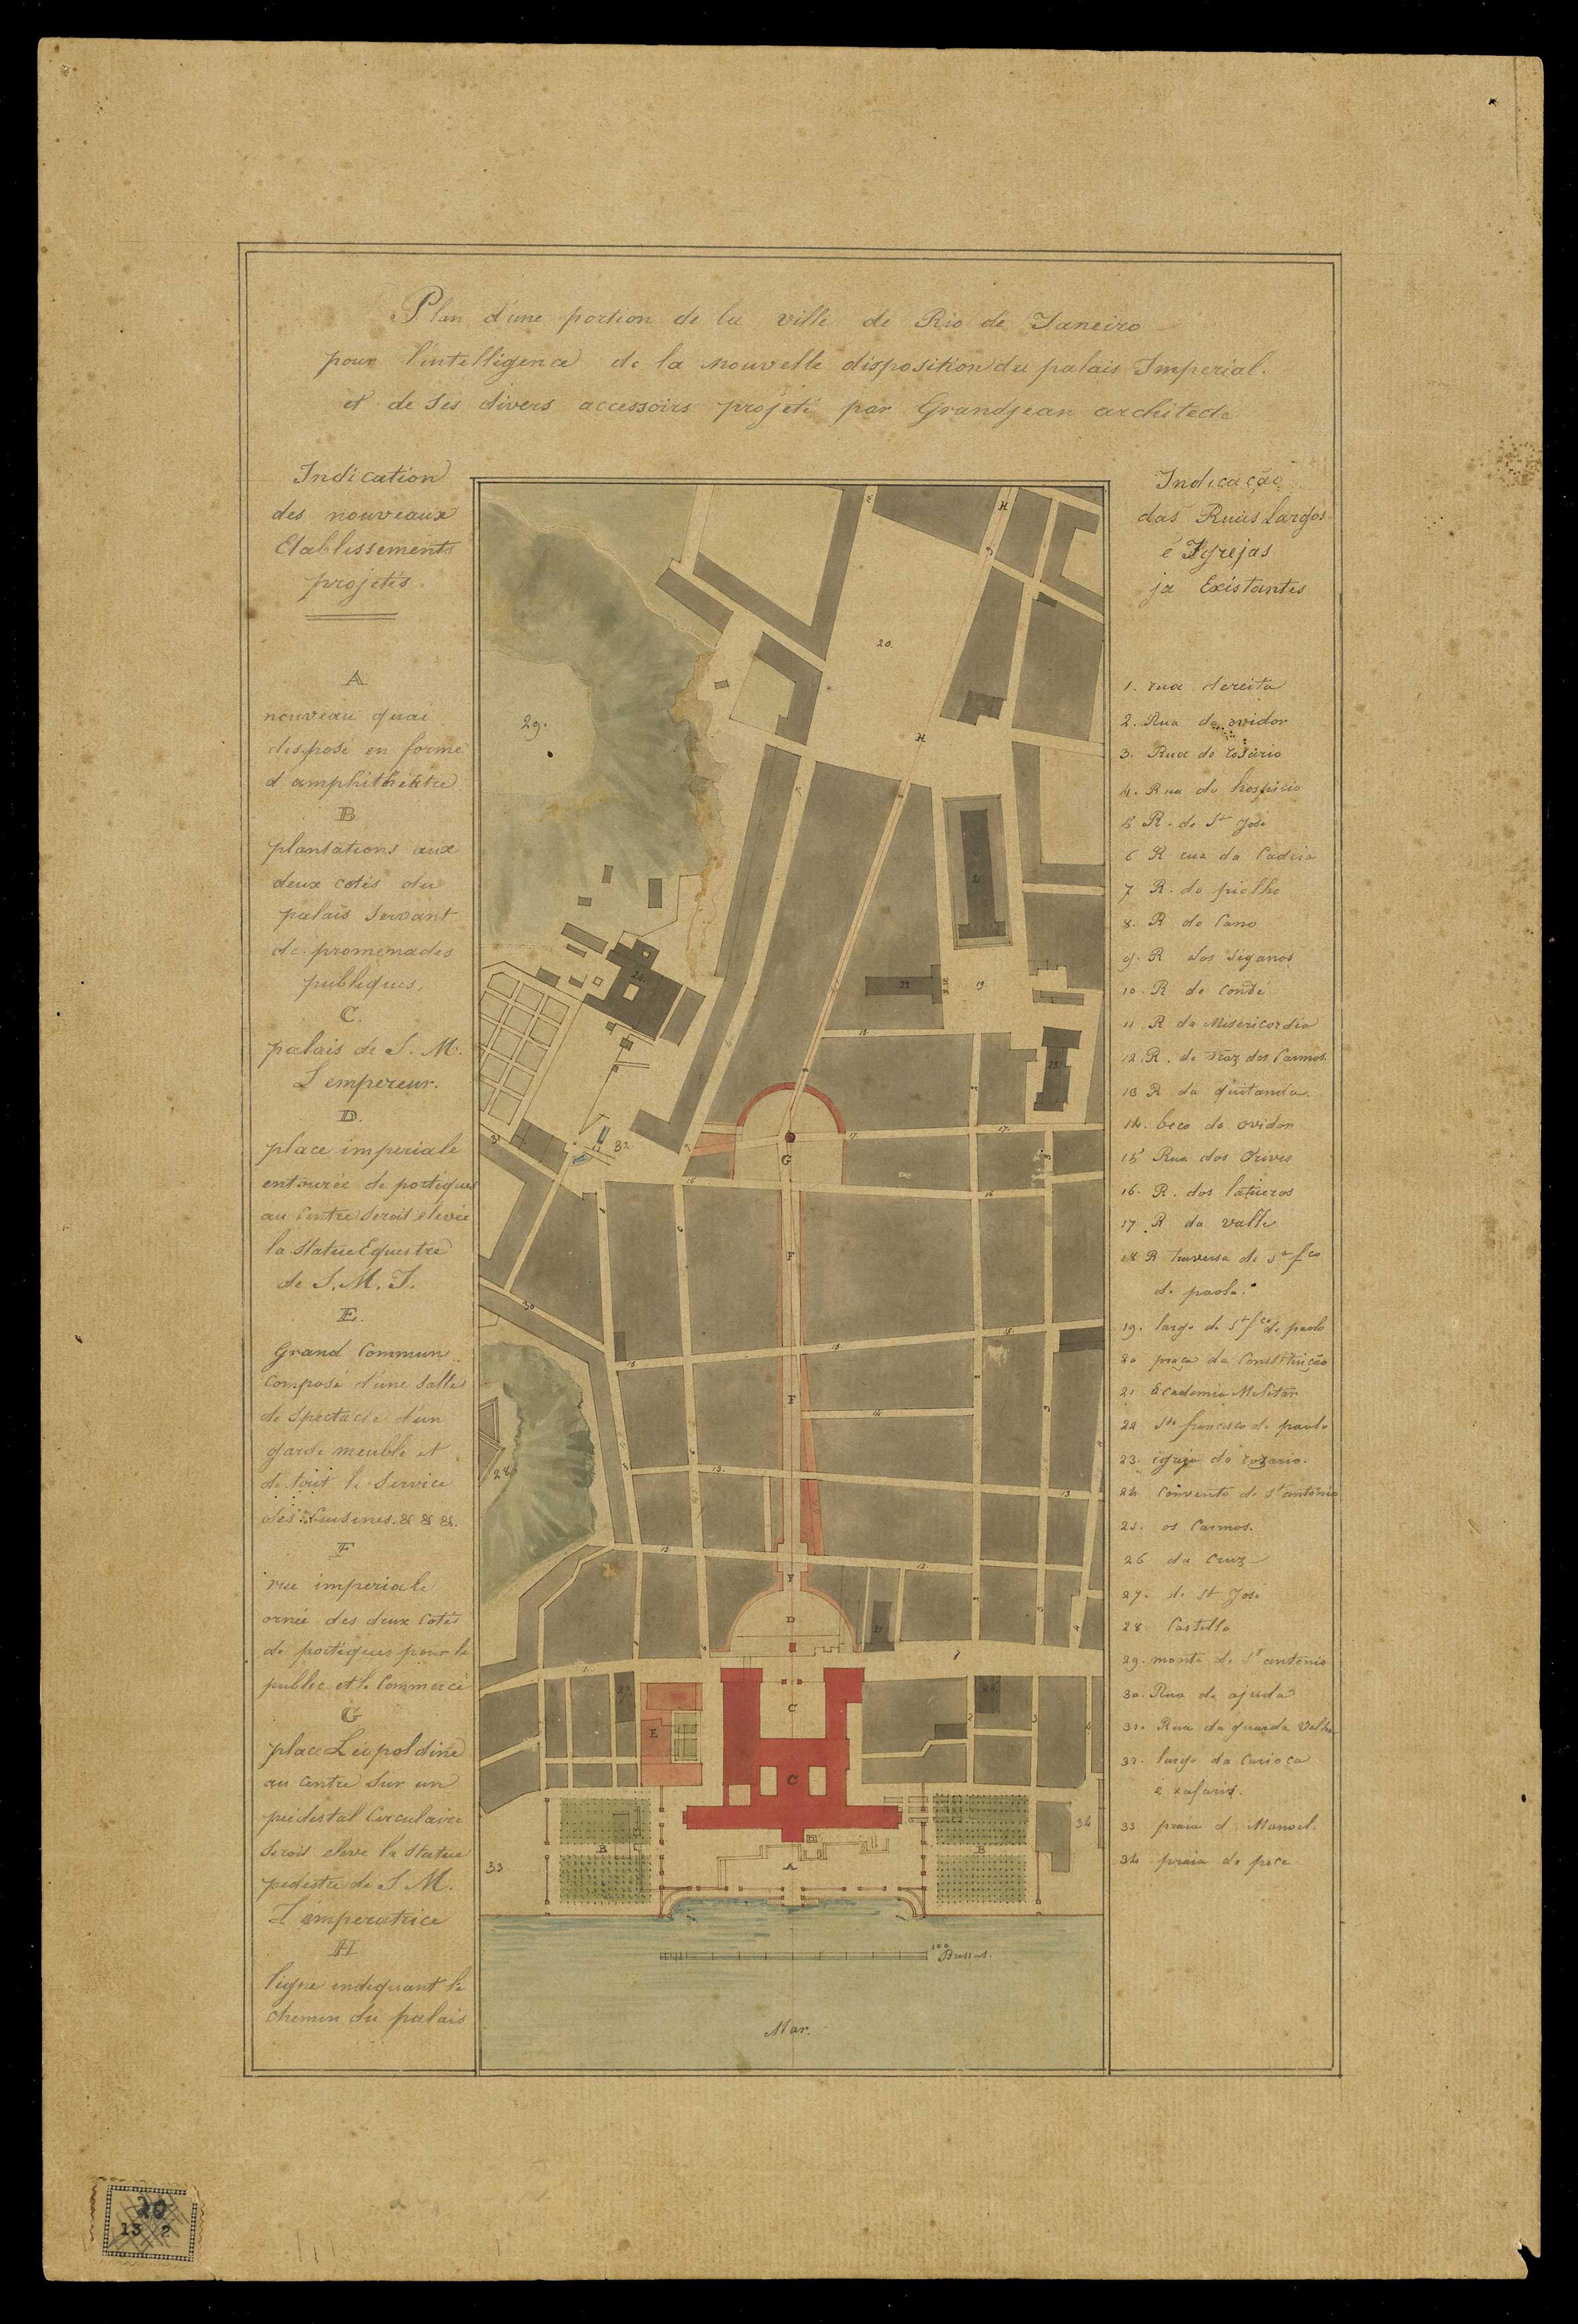 Plan d'une portion de la ville de Rio de Janeiro
pour l'intelligence de la nouvelle disposition du palais Imperial.
et de ses divers accessoirs projeté par Grandjean architecte
Indication
des nouveaux
Etablissements
projetés.
A
nouveau quai
disposé en forme
d'amphithéatre
B
plantations aux
deux cotés du
palais servant
de promenades
publiques.
C.
palais de S. M.
L'empereur.
D.
place imperiale
entourée de portiques
au Centre seroit elevée
la Statue Equestre
de S. M. I.
E.
Grand Commun
Composé d'une Salle
de spectacle d'un
garde meuble et
de tout le Service
des Cuisines. & & &.
F
rue imperiale
ornée des deux Cotés
de portiques pour le
public et le Commerce
G
place Leopoldine
au Centre sur un
piedestal Circulaire
seroit elevé la Statue
pedestre de S. M.
L'emperatrice
H
ligne indiquant le
chemin du palais
Indicação
das Ruas Largos
e Igrejas
ja Existantes
1. rua dereita
2. Rua do ovidor
3. Rua do rosario
4. Rua do hospicio
5 R. de St José
6 R rua da Cadeia
7 R. do piolho
8. R do Cano
9. R dos Siganos
10. R do Conde
11 R da Misericordia
12. R. de traz dos Carmos.
13 R da quitanda.
14. beco do ovidor
15 Rua dos Orives
16. R. dos latueros
17. R da valla
18 R traversa de Sn fco
de paola.
19. largo de Sn fco de paolo
20 praça da Constituição
21 Academia Militar
22 Sto francisco de paolo
23. igreja do rozario.
24 Convento de St antonio
25. os Carmos.
26 da Cruz
27. de St José
28. Castello
29. monte de St antonio
30. Rua da ajuda
31. Rua da guarda Velha
32. largo da Carioca
e xafaris.
33 praia d. Manoel.
34 praia do pexe
H
20.
H
29.
21
22
19
24
23
18.
31
32
17.
17.
G
16
16
F
30
15
15.
15.
F
14
28
13.
13
12
12.
F
D
1
1
27
C
E
2
3
C
34
B
B
33
A
100
Brassas.
Mar.
20
13 2